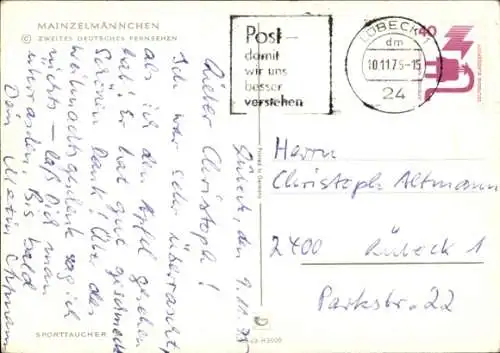 MAINZELMÄNNCHEN
© ZWEITES DEUTSCHES FERNSEHEN
Lübeck, den 9.11.75
Lieber Christoph!
Ich war sehr überrascht,
als ich den Apfel gesehen
hab! Er hat gut geschmeckt.
Schönen Dank! Über das
Weihnachtsgeschenk sag ich
nichts — laß Dich man
überraschen. Bis bald
Dein Martin
SPORTTAUCHER
Post –
damit
wir uns
besser
verstehen
LÜBECK 1
dm
10.11.75-15
24
40
Printed in Germany
Herrn
Christoph Altmann
2400 Lübeck 1
Parkstr. 22